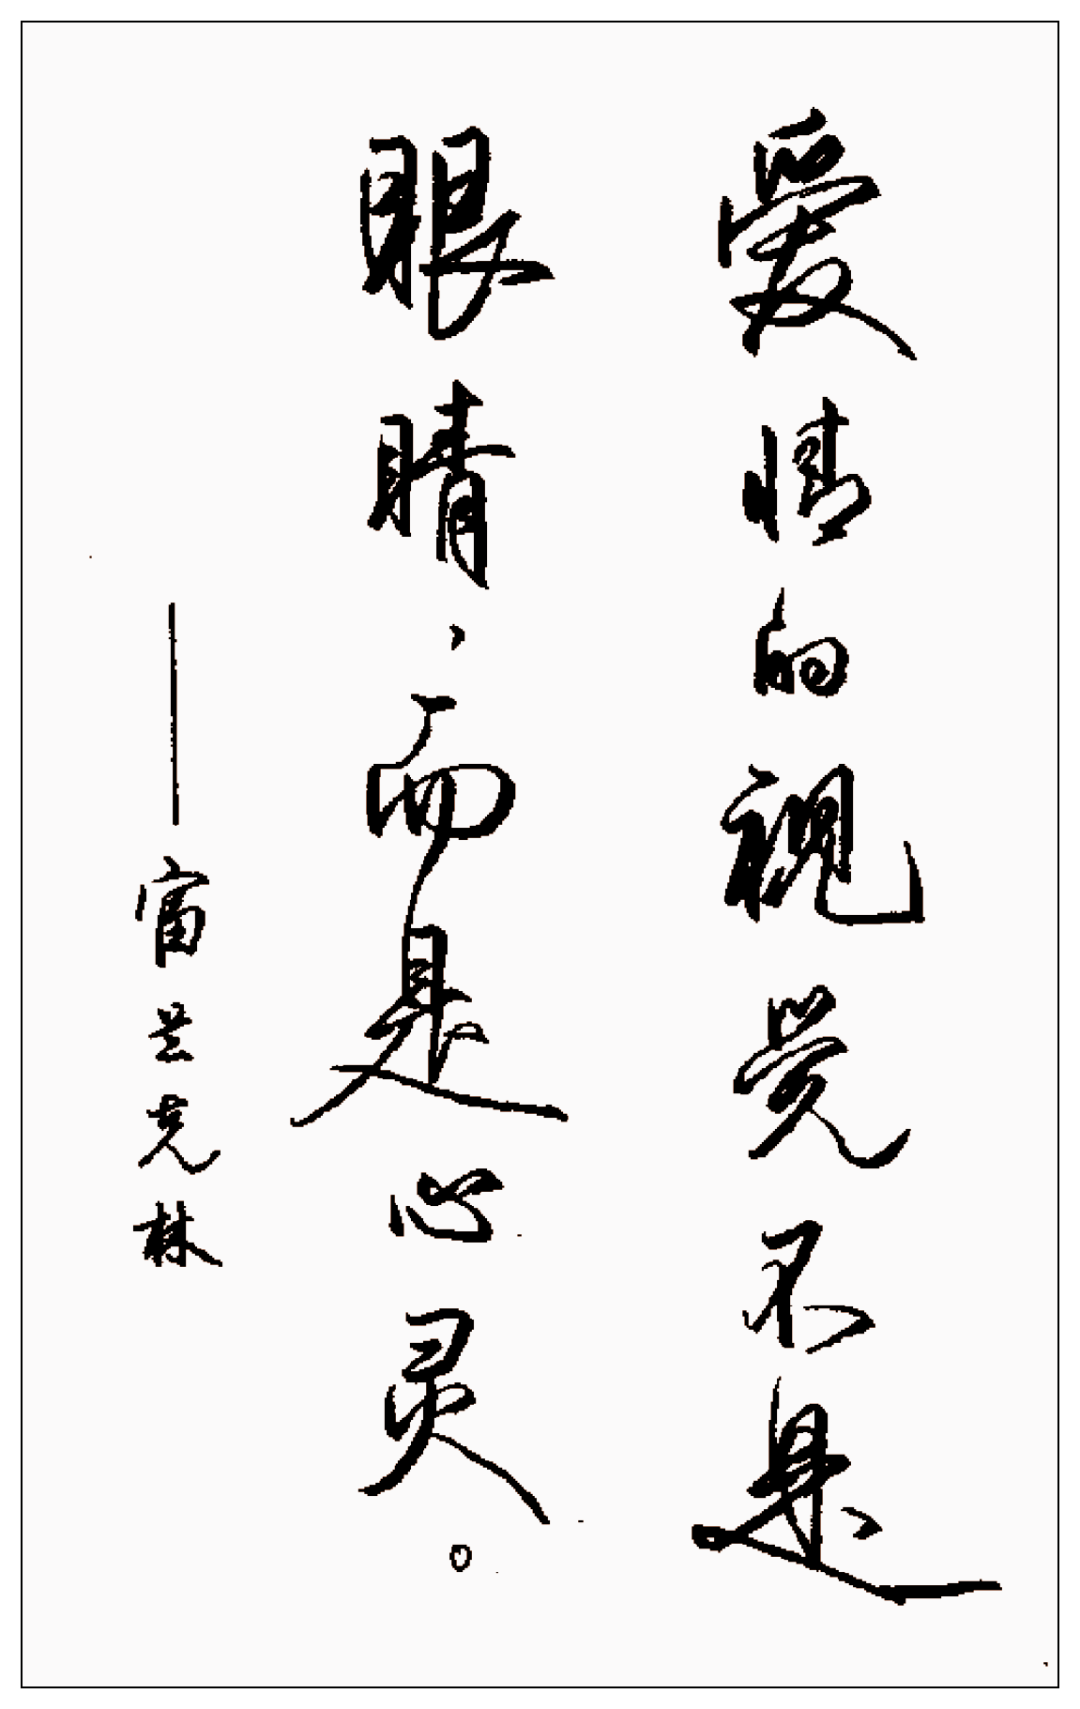 爱情的视觉不是
眼睛，而是心灵。
——富兰克林